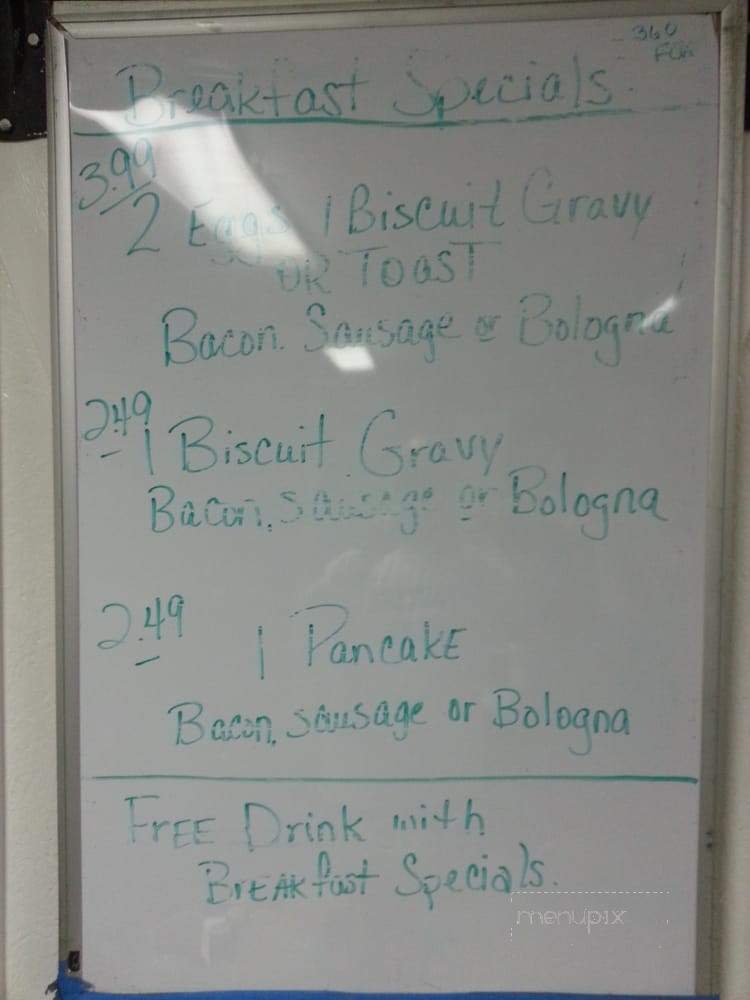 360
Breakfast Specials
3.99
2 Eggs 1 Biscuit Gravy
OR TOAST
Bacon. Sausage or Bologna
2.49
1 Biscuit Gravy
Bacon, Sausage or Bologna
2.49
1 PancakE
Bacon, sausage or Bologna
FrEE Drink with
BrEAkfast Specials.
menupix